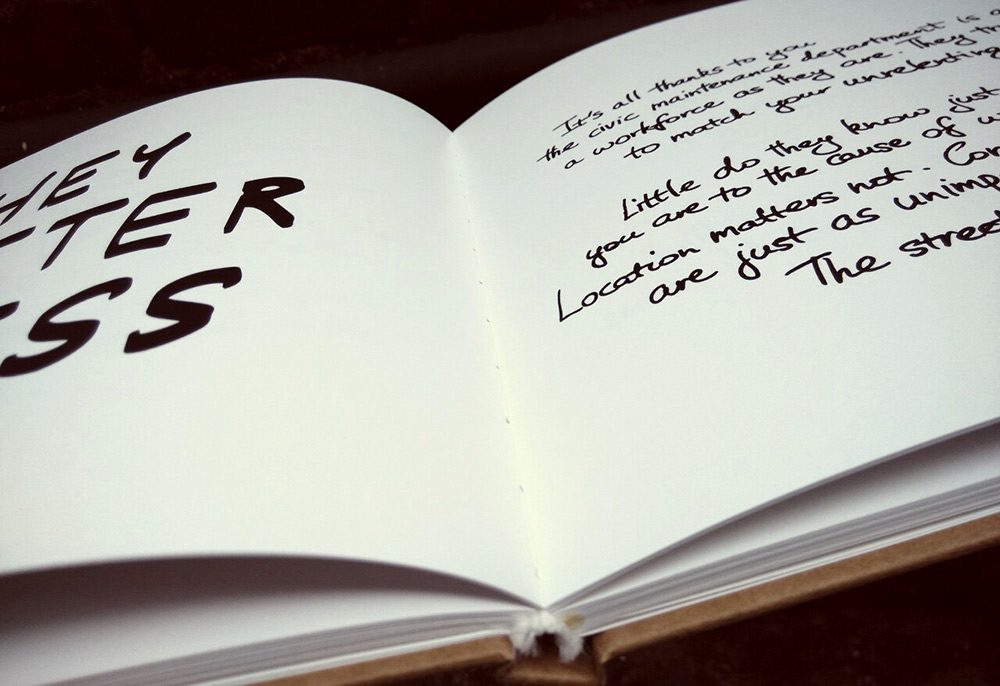 HEY
TTER
ESS
It's all thanks to you
the civic maintenance department is a
a workforce as they are. They
to match your unrelenting
Little do they know just
you are to the cause of
Location matters not. Cor
are just as unimp
The stree